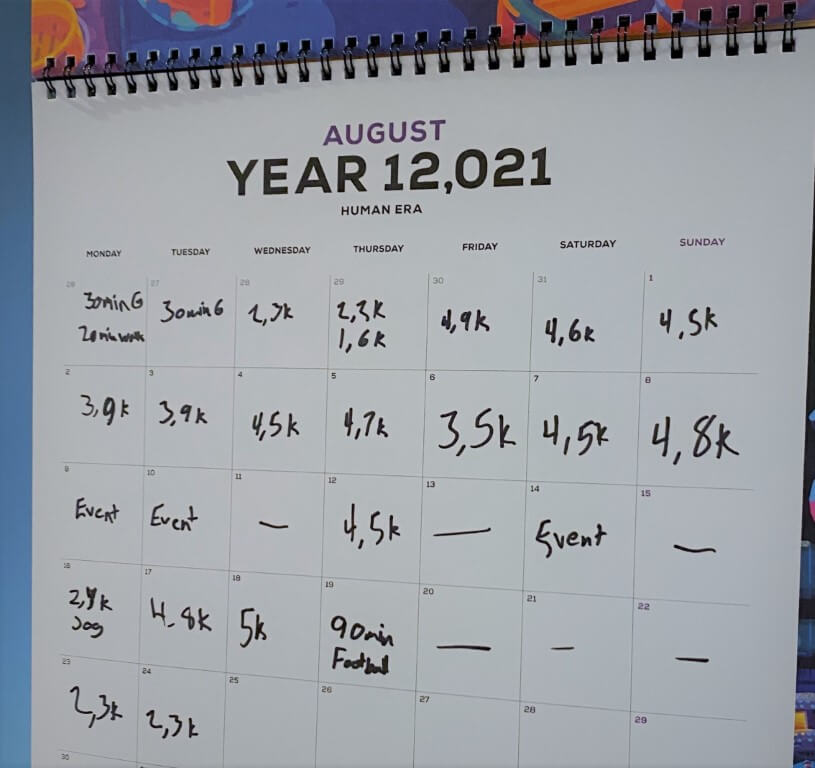 AUGUST
YEAR 12,021
HUMAN ERA
MONDAY TUESDAY WEDNESDAY THURSDAY FRIDAY SATURDAY SUNDAY
26 27 28 29 30 31 1
30min G 30min G 2,7k 2,2k 4,9k 4,6k 4,5k
20min walk 1,6k
2 3 4 5 6 7 8
3,9k 3,9k 4,5k 4,7k 3,5k 4,5k 4,8k
9 10 11 12 13 14 15
Event Event — 4,5k — Event —
16 17 18 19 20 21 22
2,4k 4.8k 5k 90min — — —
Jog Football
23 24 25 26 27 28 29
2,3k 2,3k
30